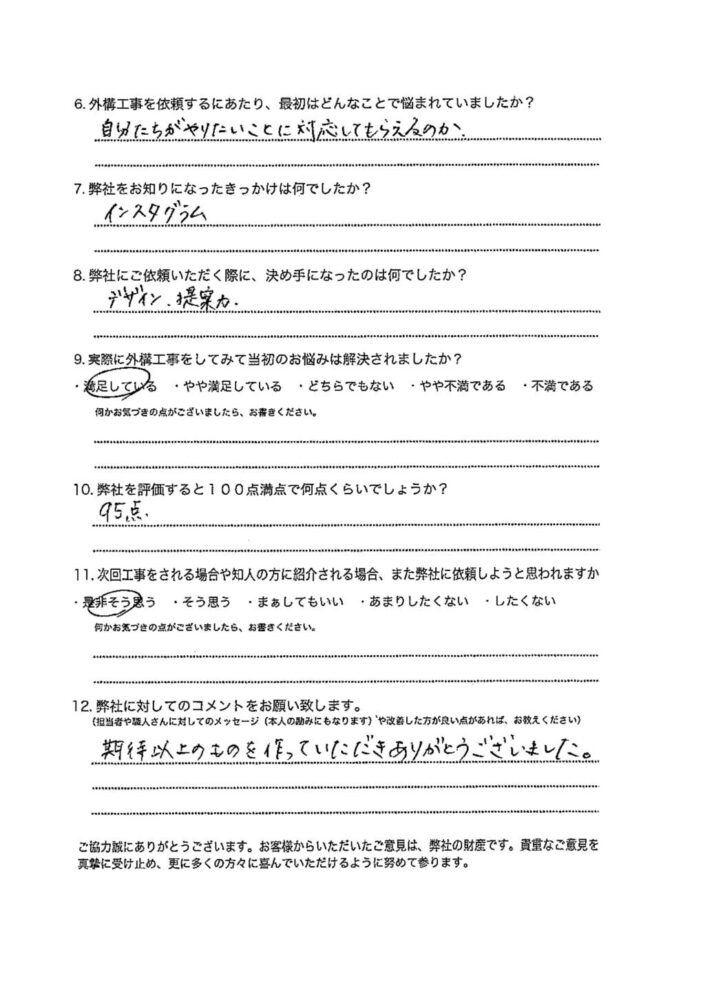 6. 外構工事を依頼するにあたり、最初はどんなことで悩まれていましたか？
自分たちがやりたいことに対応してもらえるのか.
7. 弊社をお知りになったきっかけは何でしたか？
インスタグラム
8. 弊社にご依頼いただく際に、決め手になったのは何でしたか？
デザイン.提案力.
9. 実際に外構工事をしてみて当初のお悩みは解決されましたか？
・満足している ・やや満足している ・どちらでもない ・やや不満である ・不満である
何かお気づきの点がございましたら、お書きください。
10. 弊社を評価すると１００点満点で何点くらいでしょうか？
95点.
11. 次回工事をされる場合や知人の方に紹介される場合、また弊社に依頼しようと思われますか
・是非そう思う ・そう思う ・まぁしてもいい ・あまりしたくない ・したくない
何かお気づきの点がございましたら、お書きください。
12. 弊社に対してのコメントをお願い致します。
（担当者や職人さんに対してのメッセージ（本人の励みにもなります）や改善した方が良い点があれば、お教えください）
期待以上のものを作っていただきありがとうございました。
ご協力誠にありがとうございます。お客様からいただいたご意見は、弊社の財産です。貴重なご意見を
真摯に受け止め、更に多くの方々に喜んでいただけるように努めて参ります。